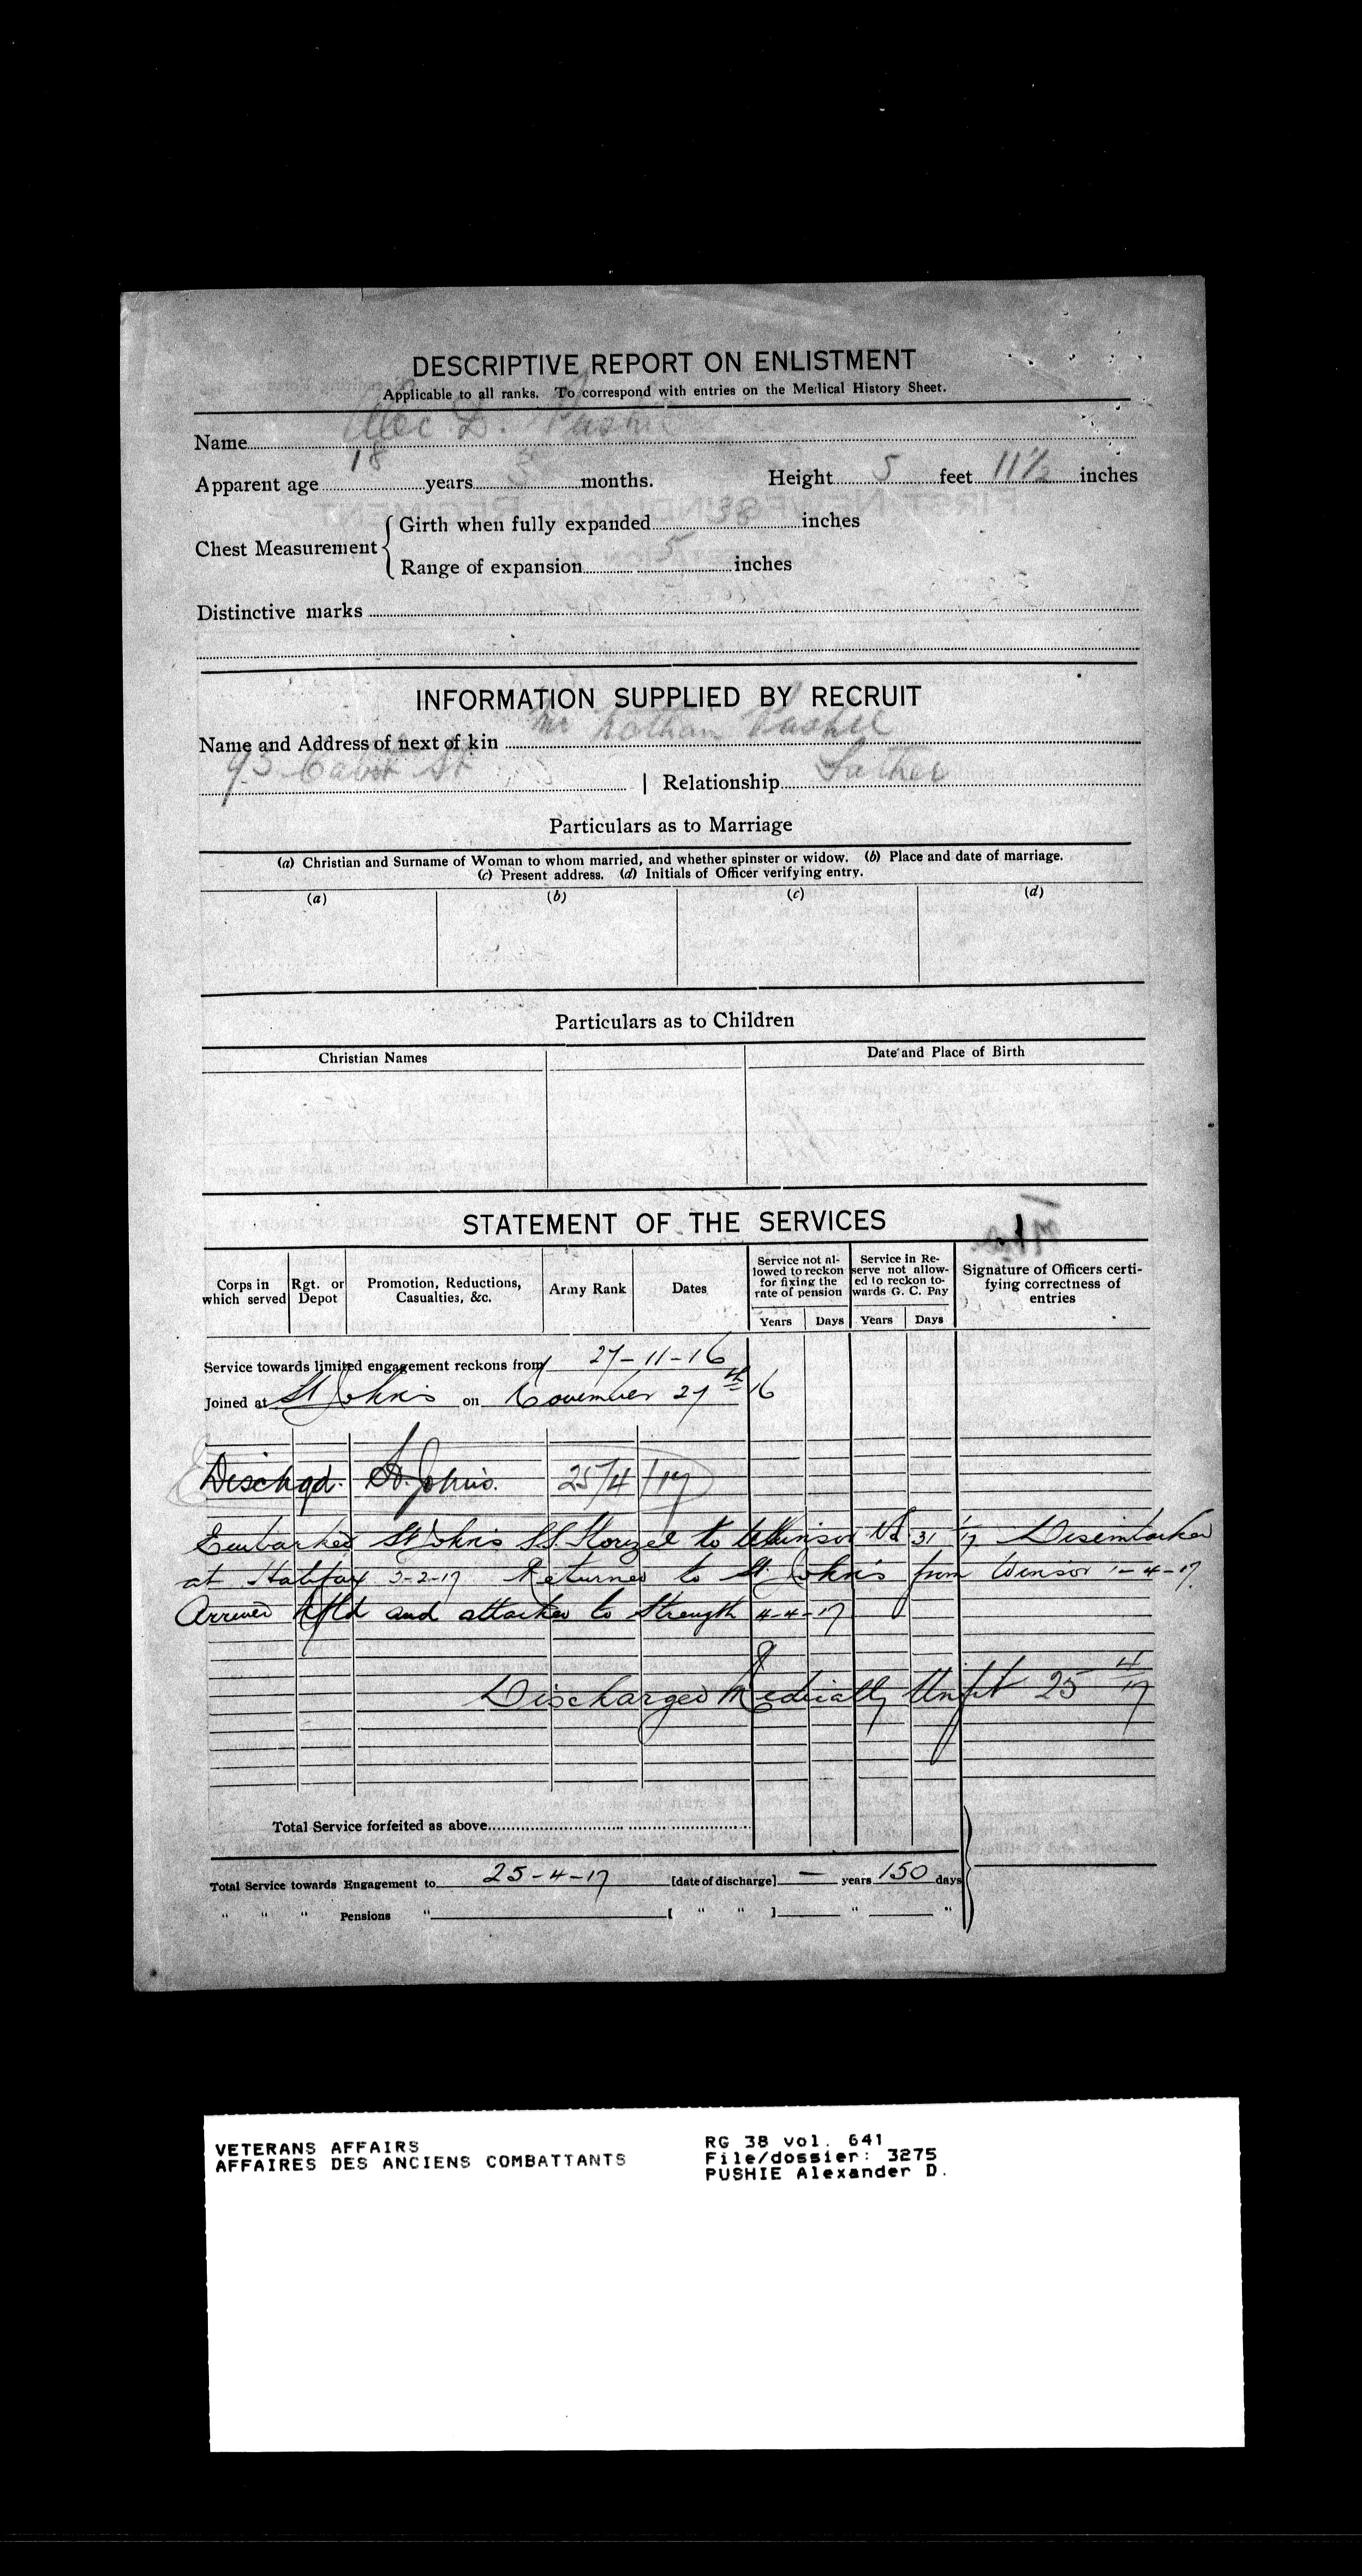 DESCRIPTIVE REPORT ON ENLISTMENT
Applicable to all ranks. To correspond with entries on the Medical History Sheet.
Name Alec D. Pushie
Apparent age 18 years 3 months. Height 5 feet 11½ inches
Chest Measurement { Girth when fully expanded 38 inches
Range of expansion 5 inches
Distinctive marks
INFORMATION SUPPLIED BY RECRUIT
Name and Address of next of kin Mr Nathan Pushie
93 Cabot St | Relationship Father
Particulars as to Marriage
(a) Christian and Surname of Woman to whom married, and whether spinster or widow. (b) Place and date of marriage.
(c) Present address. (d) Initials of Officer verifying entry.
(a) (b) (c) (d)
Particulars as to Children
Christian Names Date and Place of Birth
STATEMENT OF THE SERVICES
Corps in which served Rgt. or Depot Promotion, Reductions, Casualties, &c. Army Rank Dates Service not allowed to reckon for fixing the rate of pension Service in Reserve not allowed to reckon towards G. C. Pay Signature of Officers certifying correctness of entries
Years Days Years Days
Service towards limited engagement reckons from 27-11-16
Joined at St John's on November 27th 16
Dischgd. St. John's. 25/4/17
Embarked St John's S.S. Florizel to Winsor N.S. 31 1/17 Disembarked
at Halifax 3-2-17 Returned to St John's from Winsor 1-4-17
Arrived Nfld and attached to Strength 4-4-17
Discharged Medically Unfit 25 4/17
Total Service forfeited as above
Total Service towards Engagement to 25-4-17 [date of discharge] — years 150 days
" " " Pensions " [ " " ] " "
VETERANS AFFAIRS
AFFAIRES DES ANCIENS COMBATTANTS
RG 38 vol. 641
File/dossier: 3275
PUSHIE Alexander D.